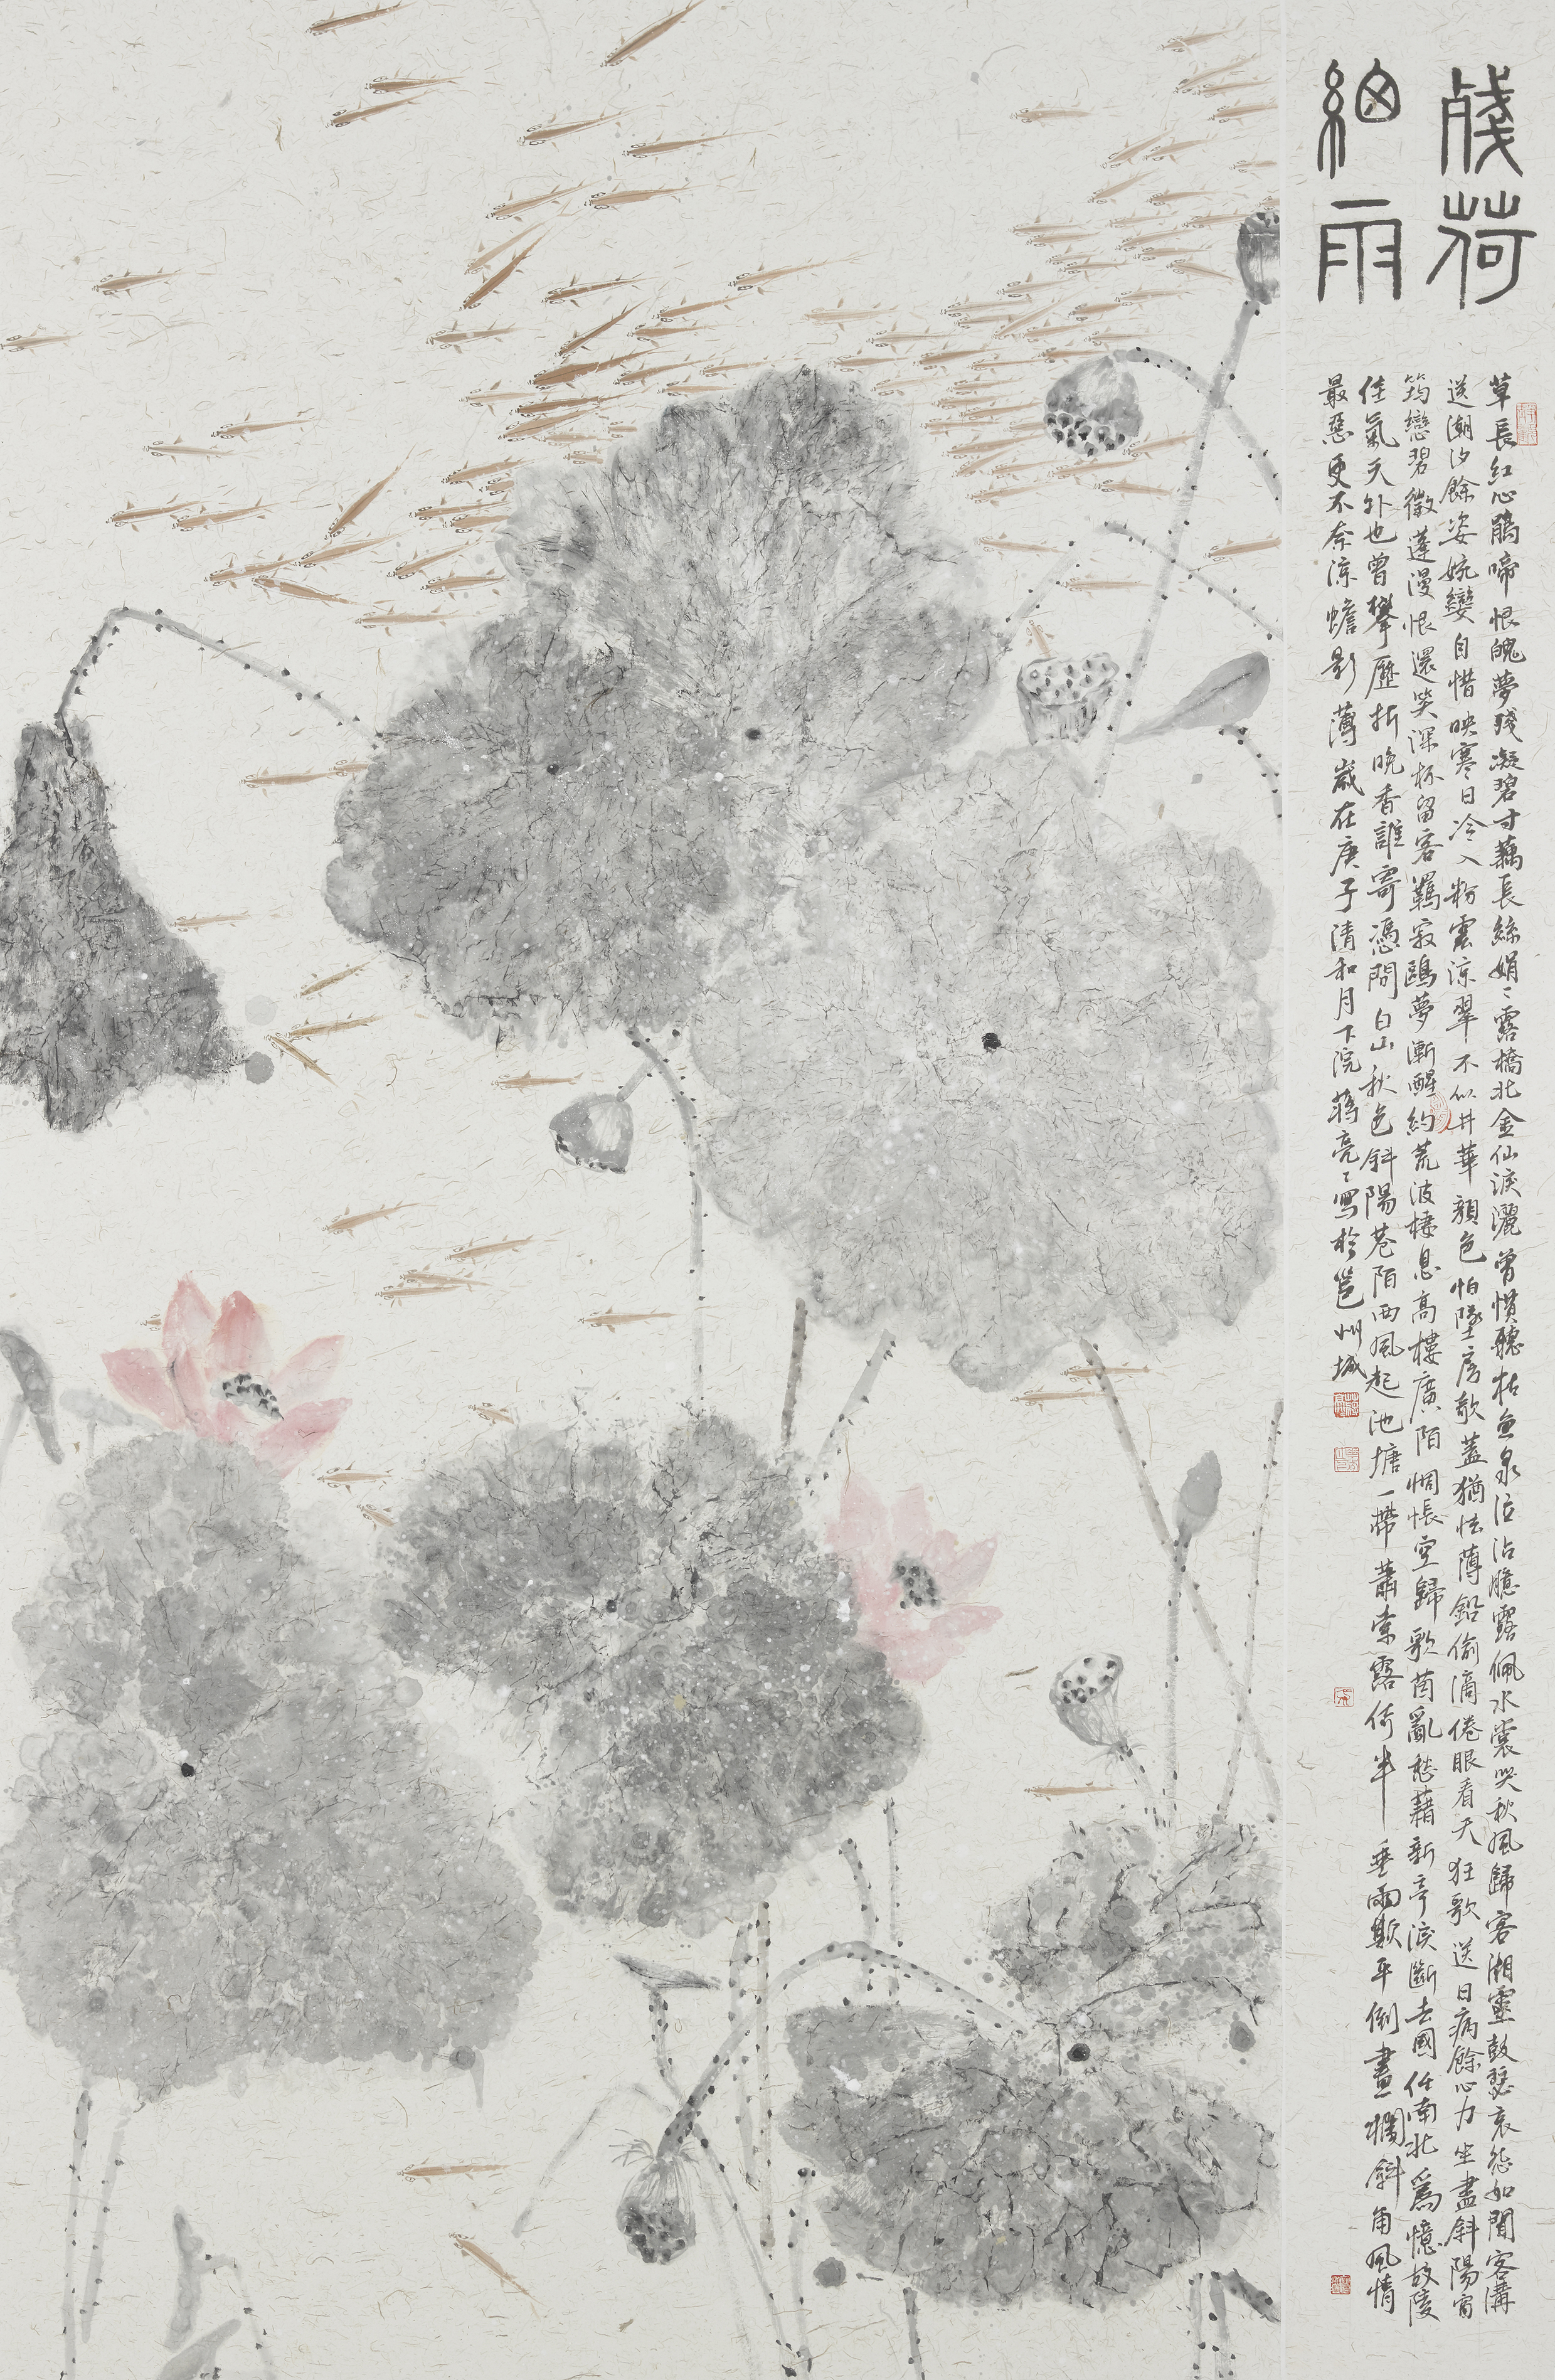 殘荷
細雨
草長紅心鵑啼恨魄夢殘凝碧寸藕長絲娟娟露橋北金仙淚灑曾慣聽枯魚泉泣沾臆露佩水裳哭秋風歸客湘靈鼓瑟哀怨如聞客溝
送潮汐餘姿婉孌自惜映寒日冷入粉雲涼翠不似井華顏色怕墜房欹蓋猶怯薄鉛偷滴倦眼看天狂歌送日病餘心力坐盡斜陽宵
筠戀碧徵蓮漫恨還笑深杯留客羈寂鷗夢漸醒約荒波棲息高樓廣陌惆悵空歸歌茵亂愁藉新亭淚斷去國任南北為憶故陵
佳氣天外也曾攀歷折晚香誰寄憑問白山秋色斜陽巷陌西風起池塘一帶蕭索露倚半垂雨欺平倒畫欄斜角風情
最惡更不奈涼蟾影薄歲在庚子清和月下浣蔣亮亮寫於邕州城